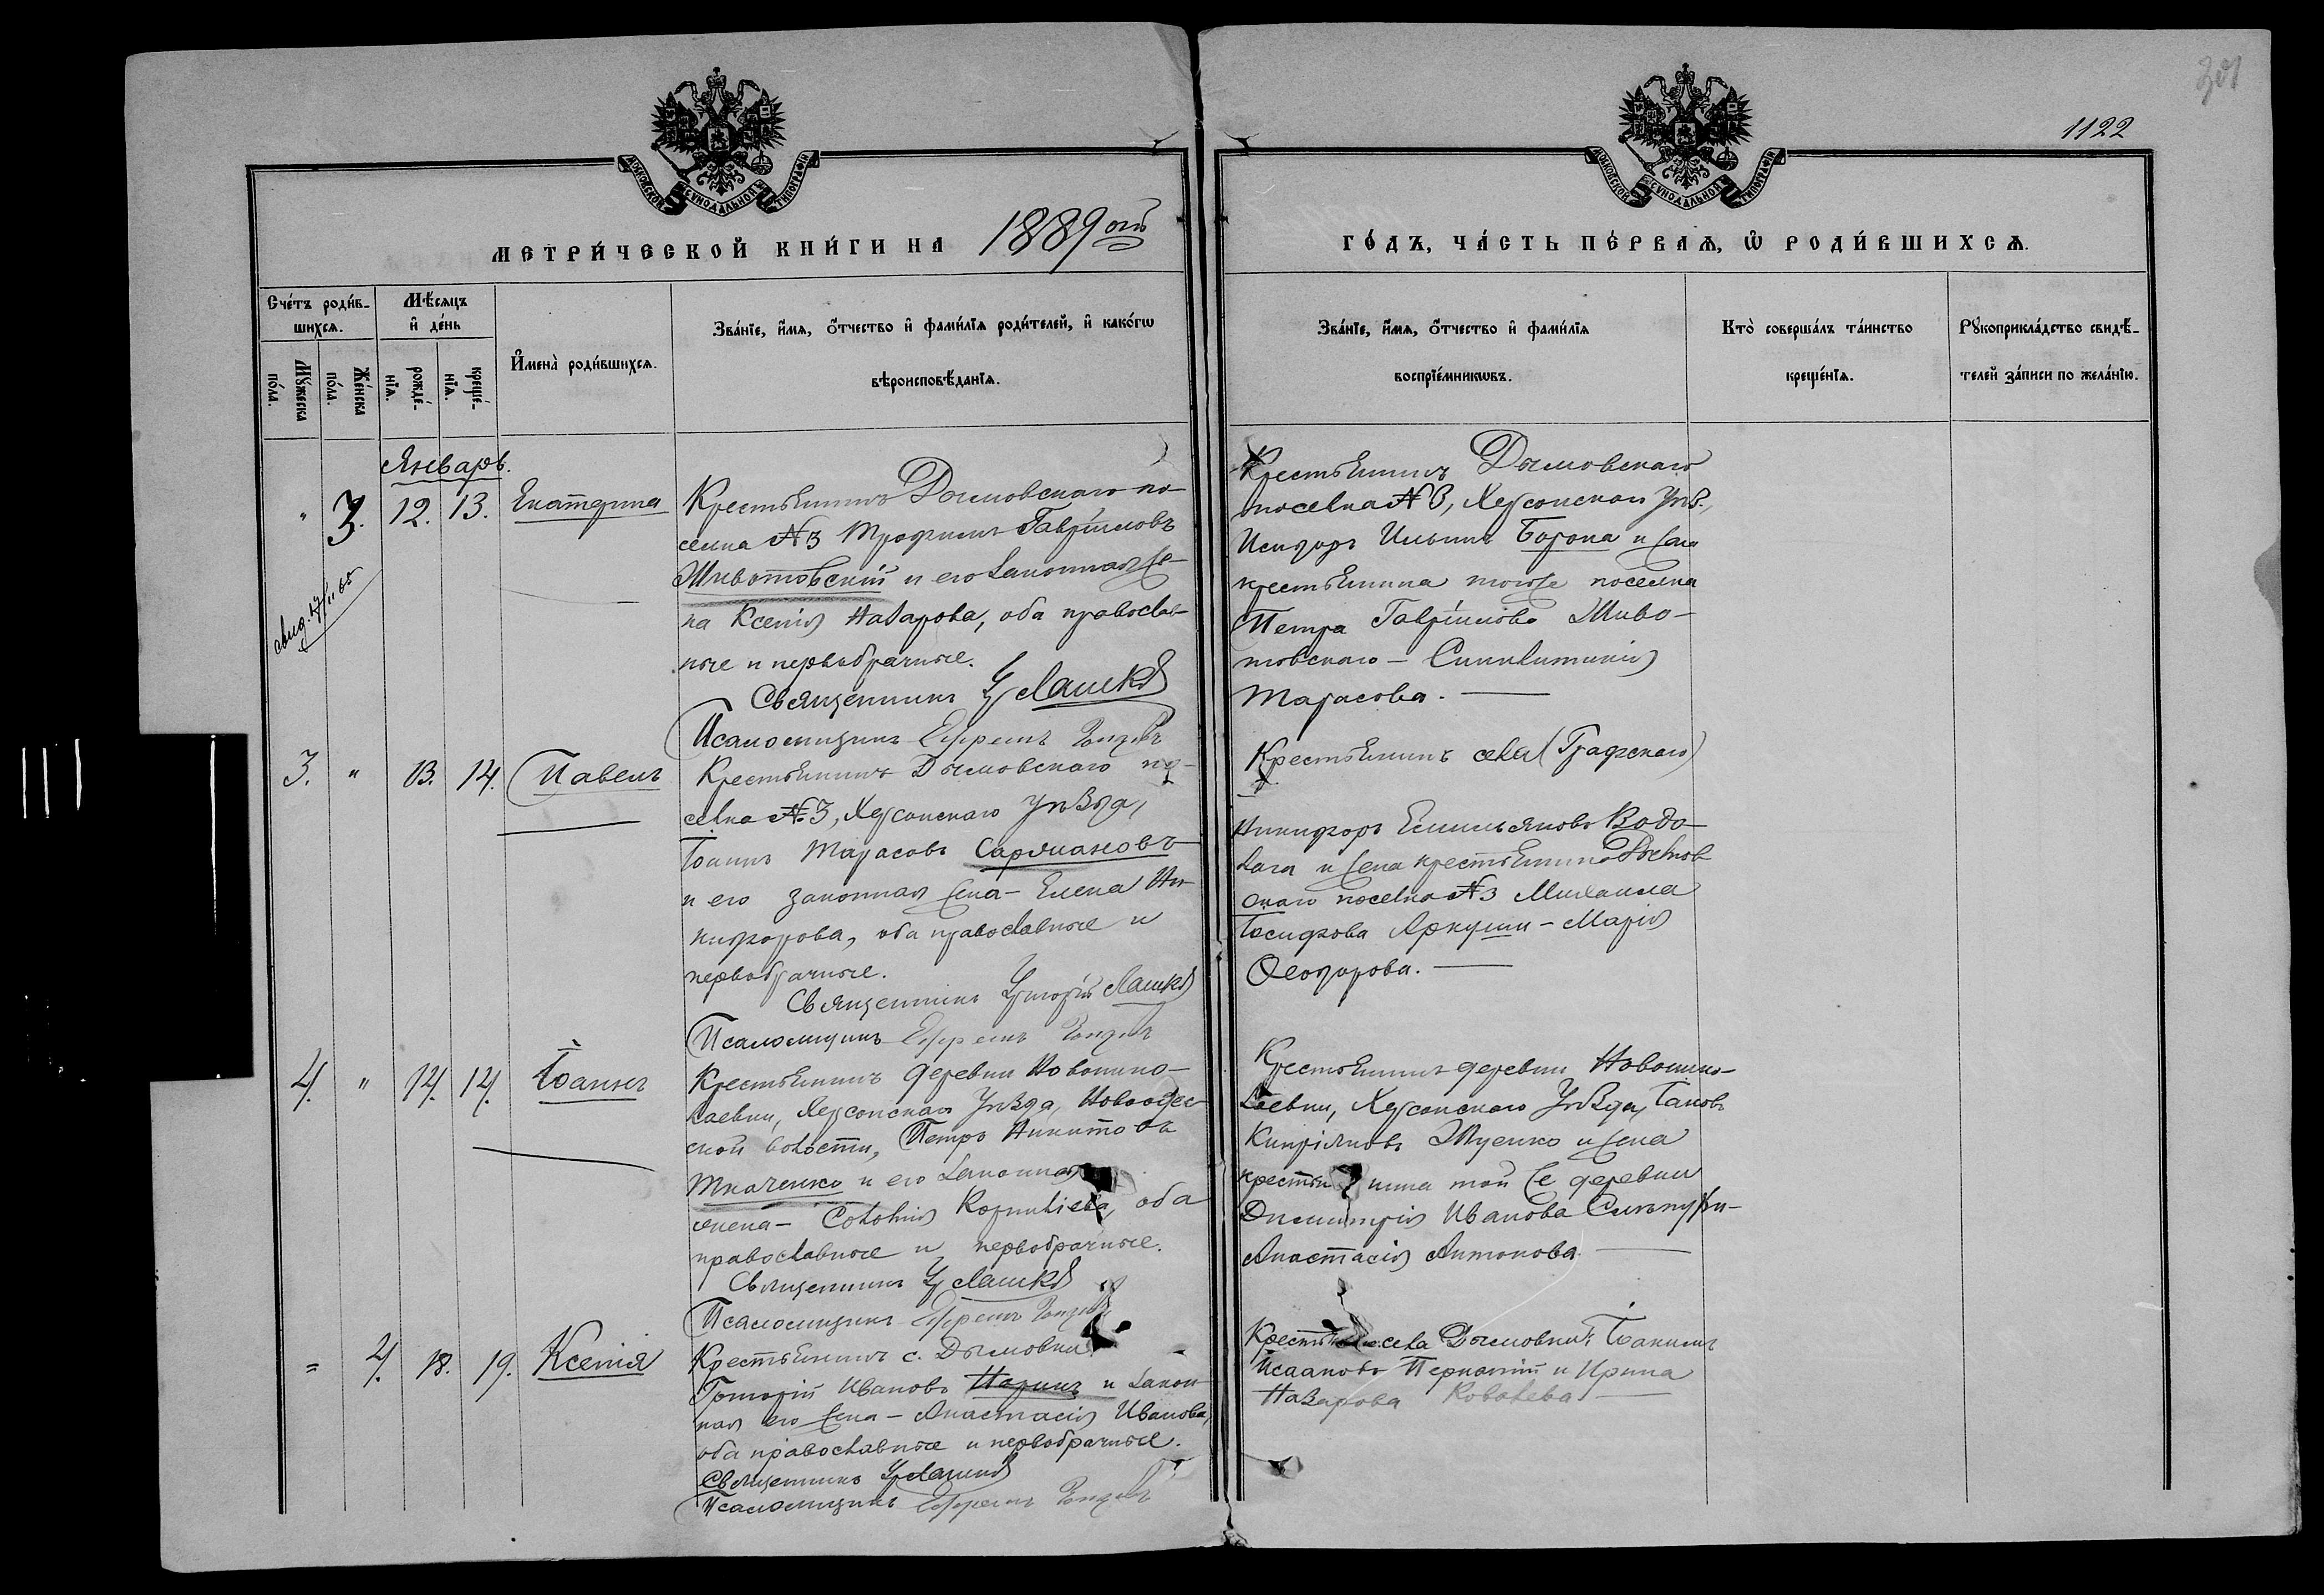 1122
МОСКОВСКОЙ СѴНОДАЛЬНОЙ ТИПОГРАФІИ
МОСКОВСКОЙ СѴНОДАЛЬНОЙ ТИПОГРАФІИ
МЕТРИ́ЧЕСКОЙ КНИ́ГИ НА 1889 ый
ГО́ДЪ, ЧА́СТЬ ПЕ́РВАѦ, Ѡ҆ РОДИ́ВШИХСѦ.
Сче́тъ роди́в-
шихсѧ.
Мꙋ́жеска
по́ла.
Же́нска
по́ла.
Мѣ́сѧцъ
и҆ де́нь
рожде́-
нїѧ.
креще́-
нїѧ.
И҆мена̀ роди́вшихсѧ.
Зва́нїе, и҆́мѧ, ѻ҆́тчество и҆ фами́лїѧ роди́телей, и҆ како́гѡ
вѣроисповѣ́данїѧ.
Зва́нїе, и҆́мѧ, ѻ҆́тчество и҆ фами́лїѧ
воспрїе́мникѡвъ.
Кто̀ соверша́лъ та́инство
креще́нїѧ.
Рꙋкоприкла́дство свидѣ́-
телей за́писи по жела́нїю.
Январь.
" 3. 12. 13. Екатерина
Крестьянинъ Дымовскаго по-
селка №3 Трофимъ Гавріиловъ
Животовскій и его законная же-
на Ксенія Назарова, оба православ-
ные и первобрачные.
Священникъ Гр Лашко
Псаломщикъ Ефремъ
Крестьянинъ Дымовскаго
поселка №3, Херсонскаго Уѣз.,
Исидоръ Ильинъ Борона и жена
крестьянина тогоже поселка
Петра Гавріилова Живо-
товскаго – Синклитикія
Тарасова.
3. " 13. 14. Павелъ
Крестьянинъ Дымовскаго по-
селка №3, Херсонскаго Уѣзда,
Іоаннъ Тарасовъ
и его законная жена – Елена Ни-
кифорова, оба православные и
первобрачные.
Священникъ Григорій Лашко
Псаломщикъ Ефремъ
Крестьянинъ села (Графскаго)
Никифоръ Емильяновъ Водо-
лага и жена крестьянина Дымов
скаго поселка №3 Михаила
Іосифова Аркуши – Марія
Ѳеодорова.
4. " 14. 14. Іоаннъ
Крестьянинъ деревни Новонико-
лаевки, Херсонскаго Уѣзда, Новоодес
ской волости, Петръ Никитовъ
Ткаченко и его законная
жена – Соломія Корниліева, оба
православные и первобрачные.
Священникъ Гр Лашко
Псаломщикъ Ефремъ
Крестьянинъ деревни Новонико-
лаевки, Херсонскаго Уѣзда, Іаковъ
Кипріяновъ Зуенко и жена
крестьянина той же деревни
Димитрія Иванова
Анастасія Антонова
= 4. 18. 19. Ксенія
Крестьянинъ с. Дымовки
Григорій Ивановъ и закон-
ная его жена – Анастасія Иванова,
оба православные и первобрачные.
Священникъ Гр Лашко
Псаломщикъ Ефремъ
села Дымовки Іоакимъ
Исааковъ и Ирина
Назарова Ковалева